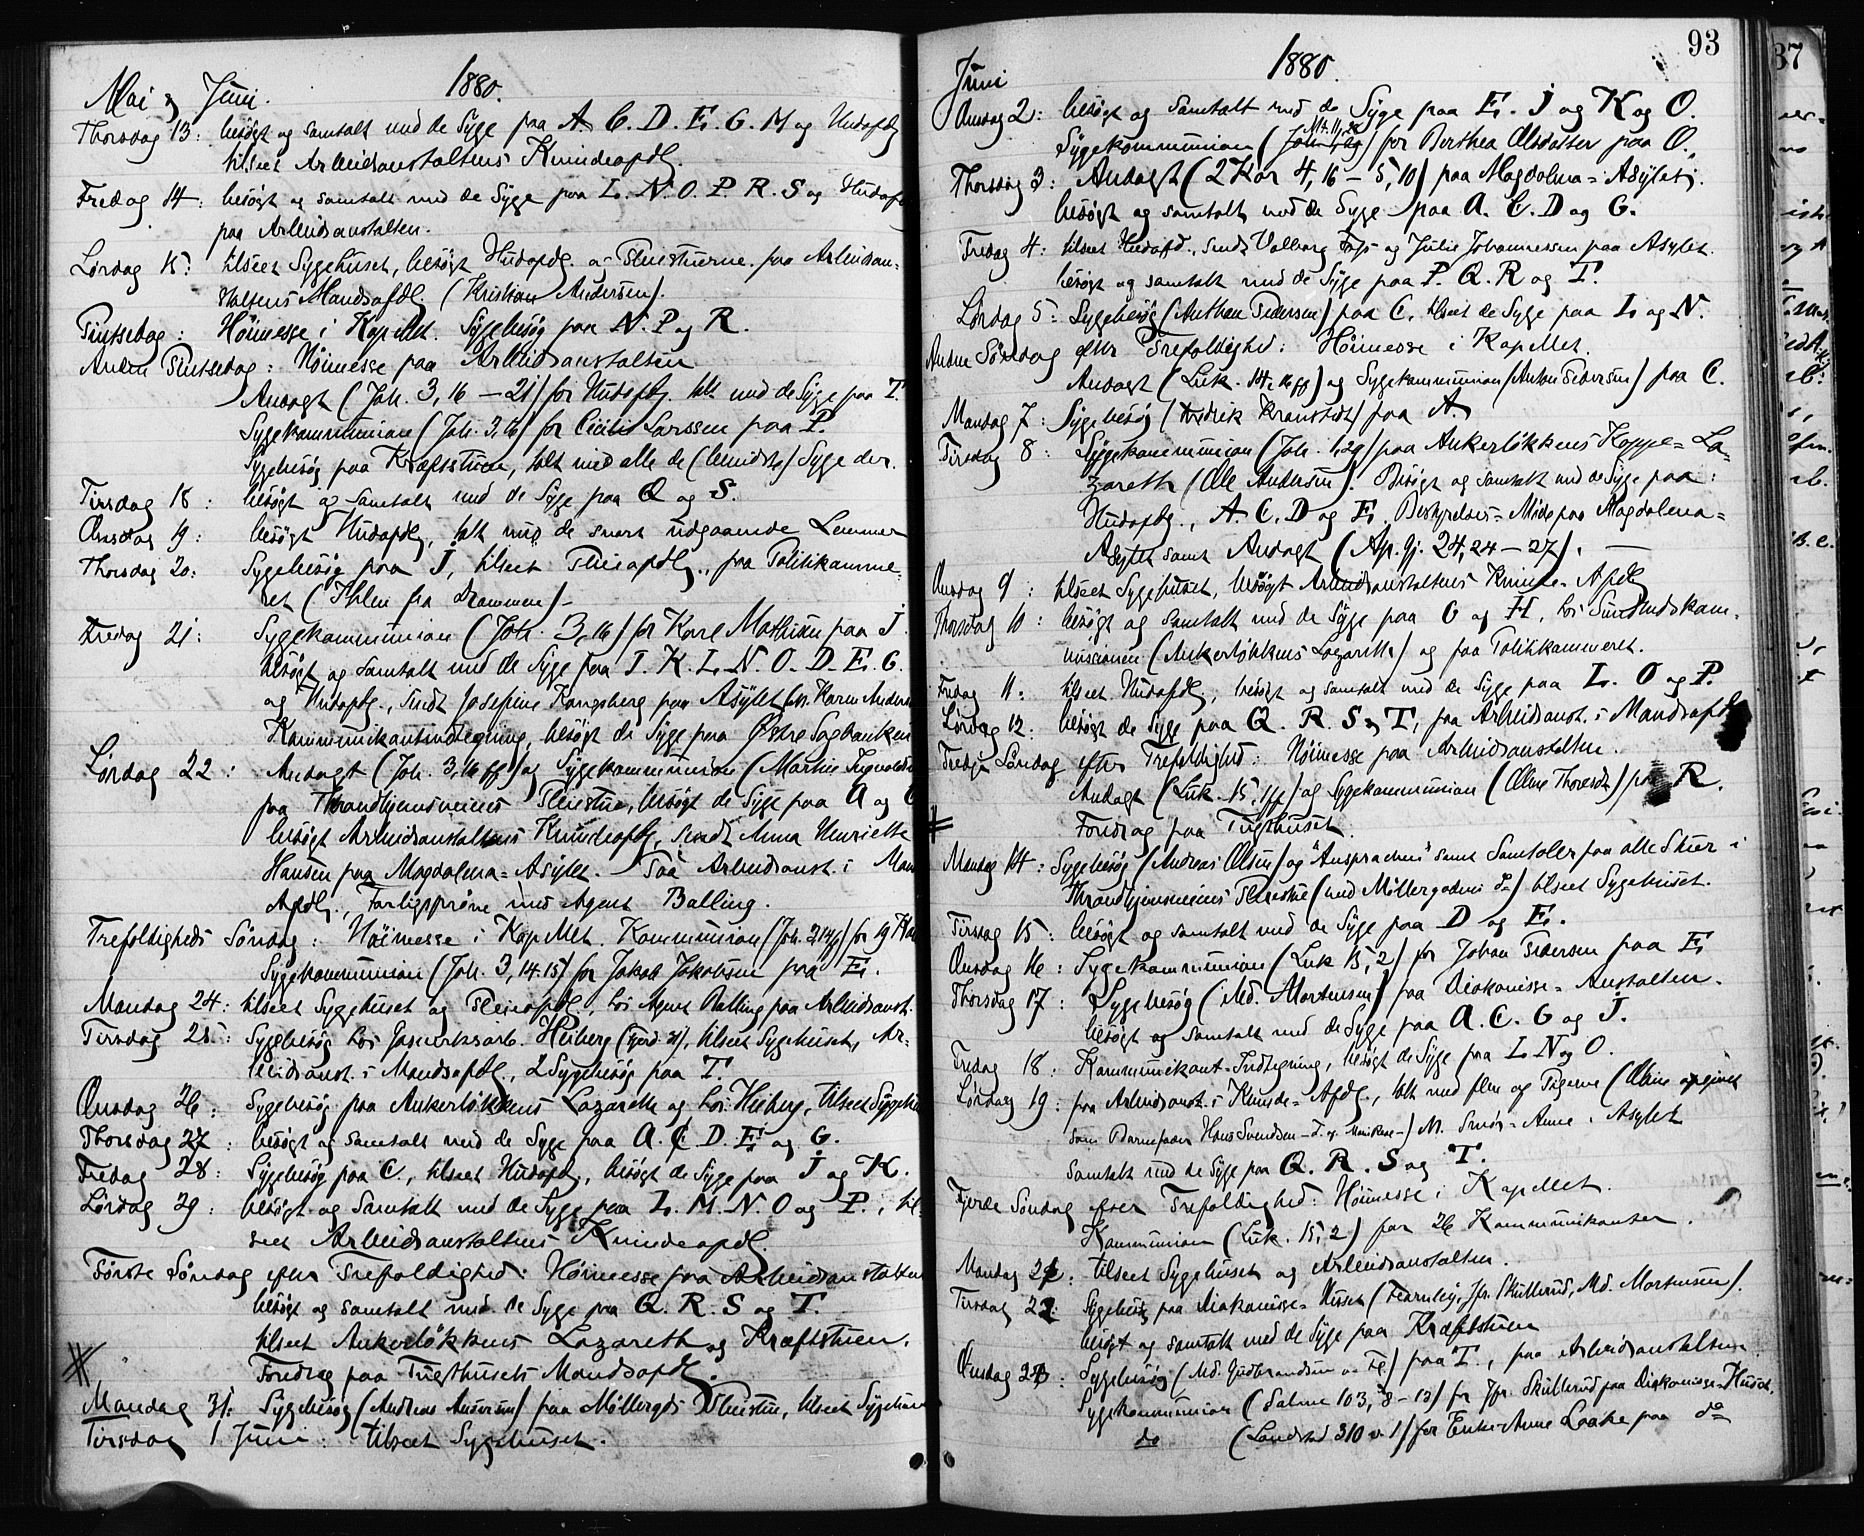 1880.
Mai & Juni.
Thorsdag 13: besøgt og samtalt med de Syge paa A. C. D. E. G. M og Hudafdlg
tilseet Arbeidsanstaltens Kvindeafdlg.
Fredag 14: besøgt og samtalt med de Syge paa L. N. O. P. R. S og Hudafd
paa Arbeidsanstalten.
Lørdag 15: tilseet Sygehuset, besøgt Hudafdlg. og Pleiestuerne, paa Arbeidsan-
staltens Mandsafdlg. (Kristian Andersen).
Pintsedag: Høimesse i Kapellet. Sygebesøg paa N. P og R.
Anden Pintsedag: Høimesse paa Arbeidsanstalten
Andagt (Joh. 3, 16 – 21) for Hudafdlg. talt med de Syge paa T.
Sygekommunion (Joh. 3, 16) for Cecilie Larssen paa P.
Sygebesøg paa Kræftstuen, talt med alle de Syge der.
Tirsdag 18: besøgt og samtalt med de Syge paa Q og S.
Onsdag 19: besøgt Hudafdlg, talt med de snart udgaaende Lemmer
Thorsdag 20: Sygebesøg paa J, tilseet Pleieafdlg., paa Politikamme-
ret (Ihlen fra Drammen) –
Fredag 21: Sygekommunion (Joh. 3, 16) for Karl Mathisen paa J.
besøgt og samtalt med de Syge paa I. K. L. N. O. D. E. G.
og Hudafdlg., sendt Josefine Kongsberg paa Asylet, Karen Anders
Kommunikantindtegning, besøgt de Syge paa Østre Sagbanken
Lørdag 22: Andagt (Joh. 3, 16 ff) og Sygekommunion (Martin
paa Throndhjemsveiens Pleiestue, besøgt de Syge paa A og C
besøgt Arbeidsanstaltens Kvindeafdlg, sendt Anna Henriette
Hansen paa Magdalena-Asylet. – Paa Arbeidsanst.s Man
Afdlg., Farligsprøve med Agent Balling.
Trefoldigheds Søndag: Høimesse i Kapellet. Kommunion (Joh. for 19 Ko
Sygekommunion (Joh. 3, 14.15) for Jakob Jakobsen paa E.
Mandag 24: tilseet Sygehuset og Pleieafdlg., hos Agent Balling paa Arbeidsanst.
Tirsdag 25: Sygebesøg hos Gasverksarb. Heiberg (Fjerd. 21), tilseet Sygehuset, Ar-
beidsanst.s Mandsafdlg., 2 Sygebesøg paa T.
Onsdag 26: Sygebesøg paa Ankerløkkens Lazareth og hos Heiberg, tilseet Sygehu
Thorsdag 27: besøgt og samtalt med de Syge paa A. C. D. E. og G.
Fredag 28: Sygebesøg paa C., tilseet Hudafdlg, besøgt de Syge paa J og K.
Lørdag 29: besøgt og Samtalt med de Syge paa L. M. N. O og P., til-
seet Arbeidsanstaltens Kvindeafdlg.
Første Søndag efter Trefoldighed: Høimesse paa Arbeidsanstalten
besøgt og samtalt med de Syge paa Q. R. S og T.
tilseet Ankerløkkens Lazareth og Kræftstuen.
# Foredrag paa Tugthusets Mandsafdlg.
Mandag 31: Sygebesøg (Andreas Andersen) paa Møllergds Pleiestue, tilseet Sygehuse
Tirsdag 1 Juni: tilseet Sygehuset.
93
1880.
Juni
Onsdag 2: besøgt og samtalt med de Syge paa E. J og K og O.
Mt. 11, 28
Sygekommunion (Joh. 1, 29) for Berthea Olsdatter paa O.
Thorsdag 3: Andagt (2 Kor 4, 16 – 5, 10) paa Magdalena-Asylet;
besøgt og samtalt med de Syge paa A. C. D og G.
Fredag 4: tilseet Hudafd., sendt Valborg og Julie Johannessen paa Asylet.
besøgt og samtalt med de Syge paa P. Q. R og T.
Lørdag 5: Sygebesøg (Anthon Pedersen) paa C, tilseet de Syge paa L og N.
Anden Søndag efter Trefoldighed: Høimesse i Kapellet.
Andagt (Luk. 14, 16 ff) og Sygekommunion (Anton Pedersen) paa C.
Mandag 7: Sygebesøg (Fredrik Kranstedt) paa A.
Tirsdag 8: Sygekommunion (Joh. 1, 29) paa Ankerløkkens Koppe-La-
zareth (Ole Andersen). Besøgt og samtalt med de Syge paa:
Hudafdlg., A. C. D og E. Bestyrelses-Møde paa Magdalena-
Asylet samt Andagt (Ap. Gj. 24, 24 – 27). —
Onsdag 9: tilseet Sygehuset, besøgt Arbeidsanstaltens Kvinde-Afdlg
Thorsdag 10: besøgt og samtalt med de Syge paa G og H, hos Sundhedskom-
missionen (Ankerløkkens Lazareth) og paa Politikammeret.
Fredag 11: tilseet Hudafdlg, besøgt og samtalt med de Syge paa L. O og P.
Lørdag 12: besøgt de Syge paa Q. R. S & T, paa Arbeidsanst.s Mandsafdlg
Tredje Søndag efter Trefoldighed: Høimesse paa Arbeidsanstalten.
Andagt (Luk. 15, 1 ff) og Sygekommunion (Oline Thoresdt) paa R.
# Foredrag paa Tugthuset.
Mandag 14: Sygebesøg (Andreas Olsen) og "Ansprachen" samt Samtaler paa alle Stuer i
Throndhjemsveiens Pleiestue (med Møllergadens do) tilseet Sygehuset.
Tirsdag 15: besøgt og samtalt med de Syge paa D og E.
Onsdag 16: Sygekommunion (Luk 15, 2) for Johan Pedersen paa E
Thorsdag 17: Sygebesøg (Md. Mortensen) paa Diakonisse-Anstalten.
besøgt og samtalt med de Syge paa A. C. G og J.
Fredag 18: Kommunikant-Indtegning, besøgt de Syge paa L N og O.
Lørdag 19: paa Arbeidsanst.s Kvinde-Afdlg., talt med flere og Pigerne (Oline opgivet
som Barnefader Hans Svendsen M. Smør-Anne, Asylet
samtalt med de Syge paa Q. R. S og T.
Fjerde Søndag efter Trefoldighed: Høimesse i Kapellet.
Kommunion (Luk. 15, 2) for 26 Kommunikanter.
Mandag 21: tilseet Sygehuset og Arbeidsanstalten.
Tirsdag 22: Sygebesøg paa Diakonisse-Huset (Fearnley, Jfr. Skullerud, Md. Mortensen).
besøgt og samtalt med de Syge paa Kræftstuen
Onsdag 23: Sygebesøg (Md. Gudbrandsen paa T., paa Arbeidsanstalten.
Sygekommunion (Salme 103, 8 – 13) for Jfr. Skullerud paa Diakonisse-Huset,
do (Landstad 310 v. 1) for Enke Anne Laake paa do